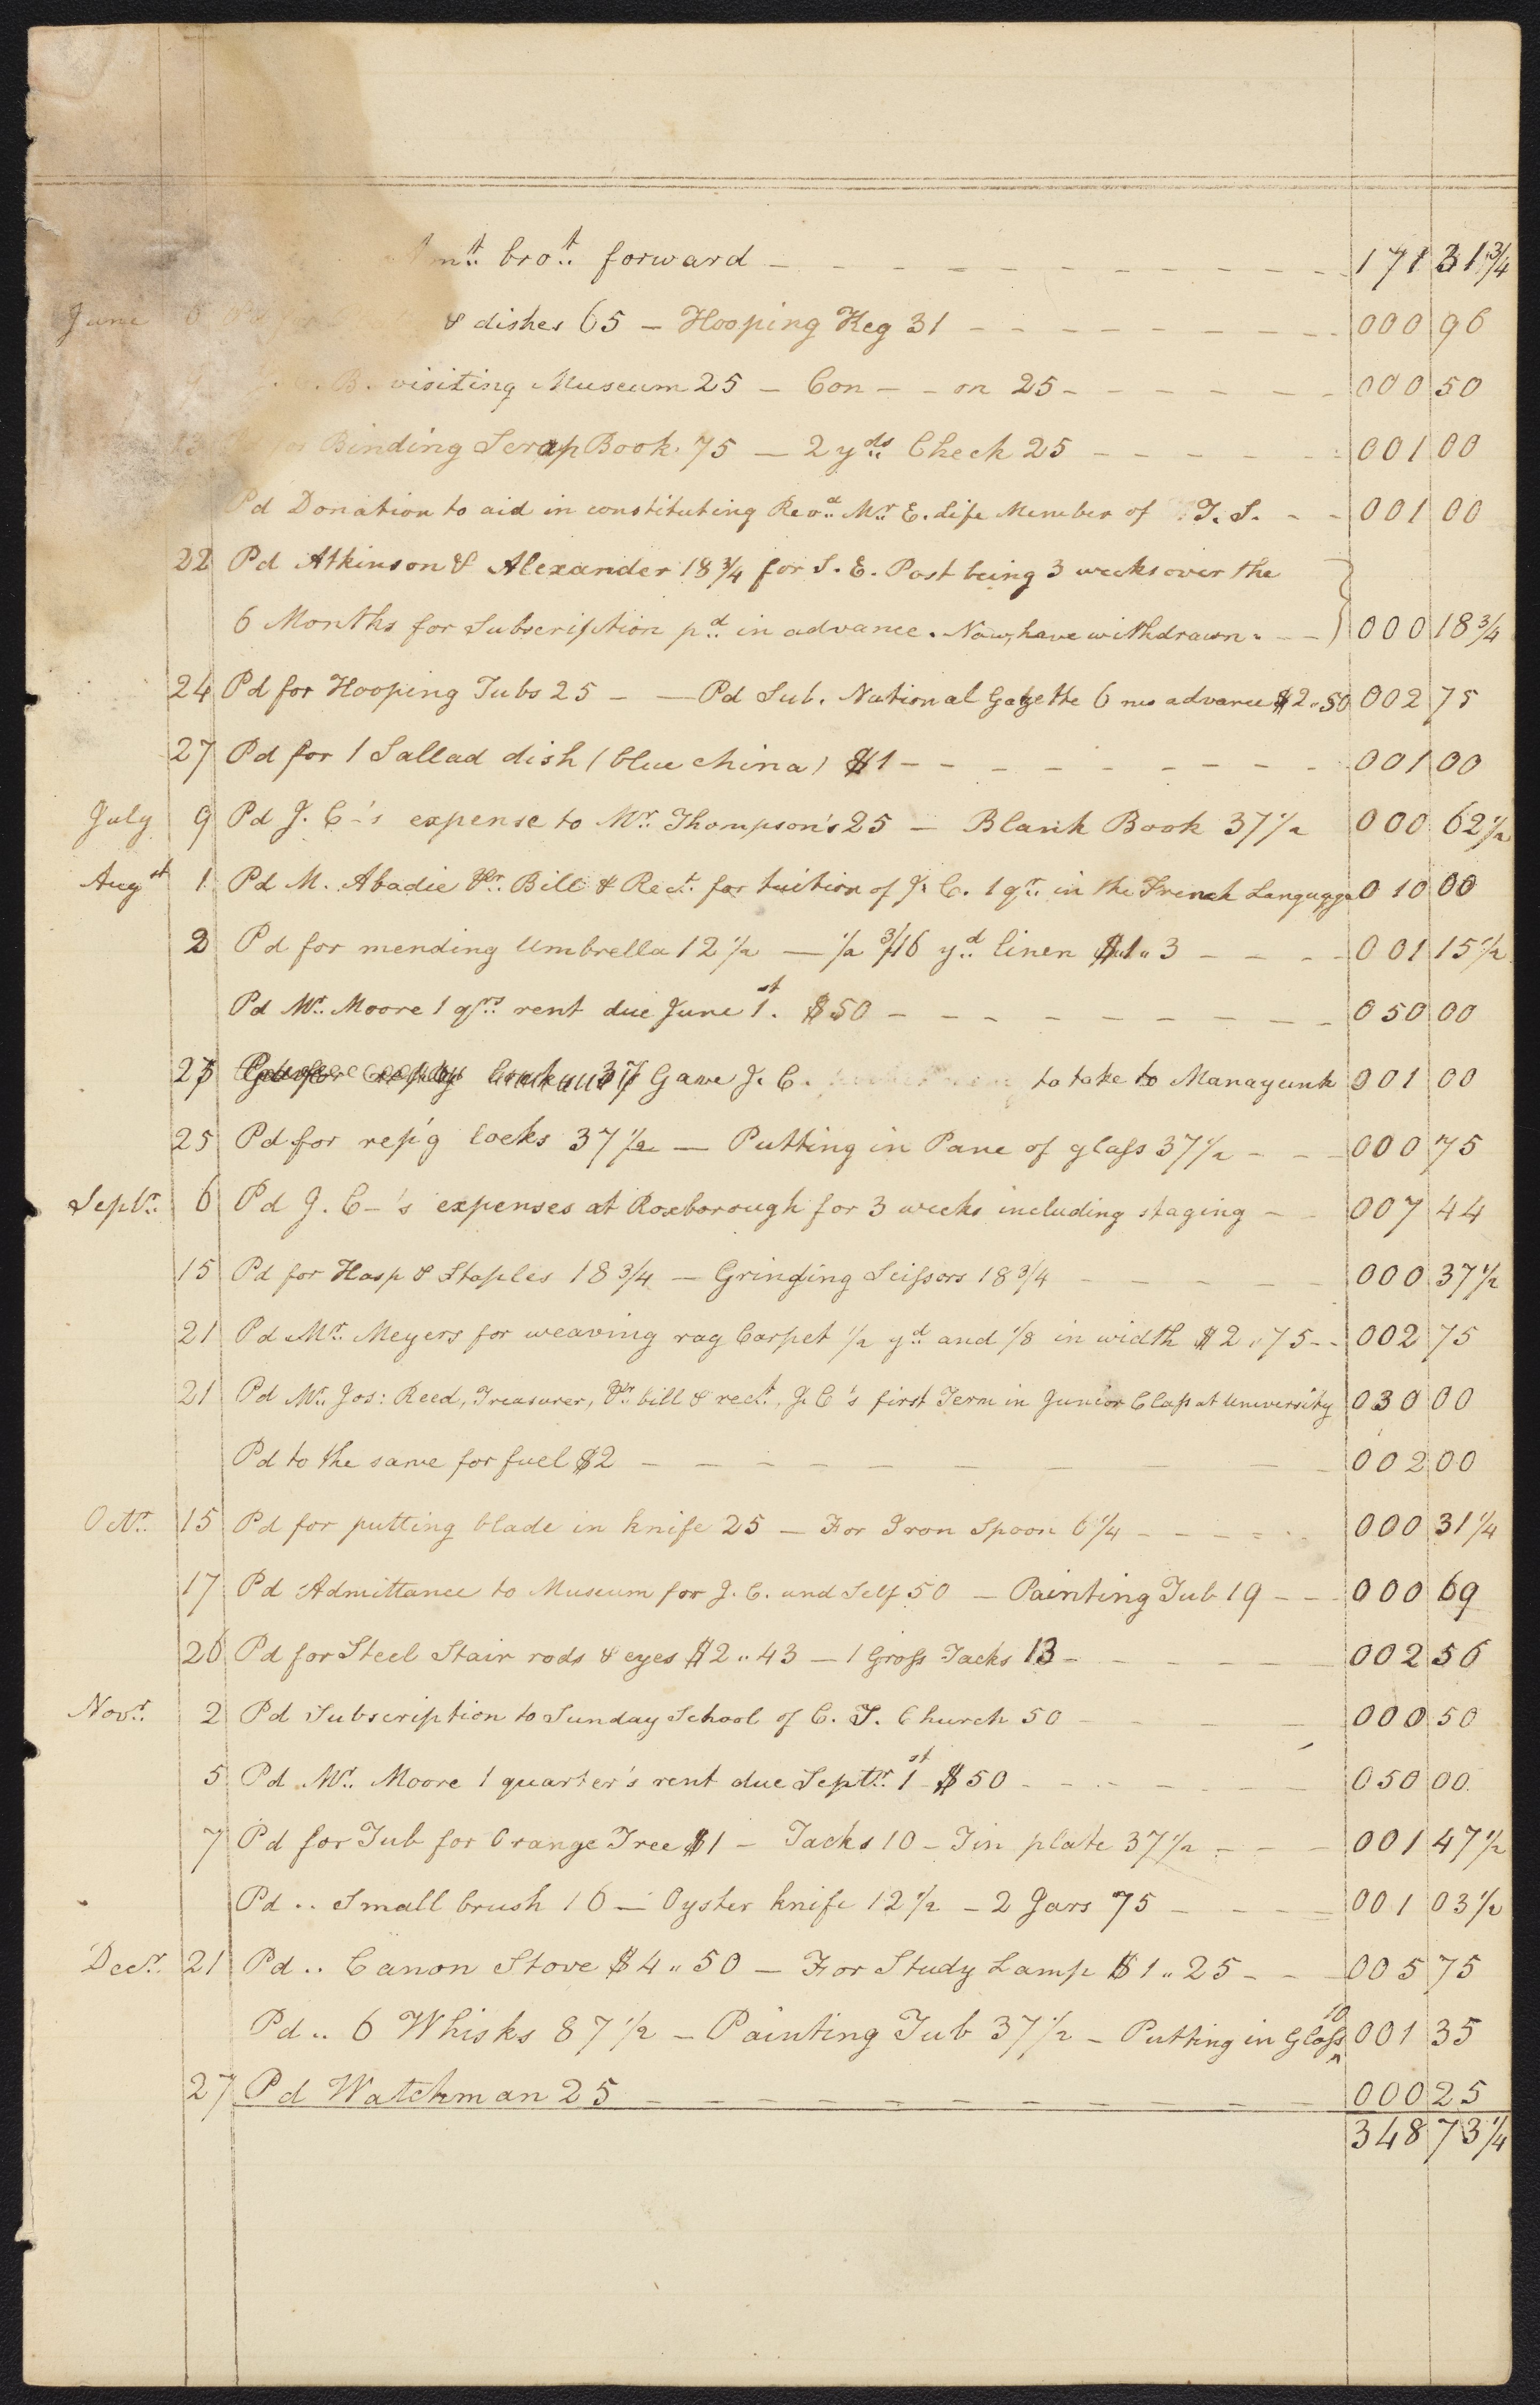 Amt. brot. forward - - - - - - - - - - - 171 31 3/4
June & dishes 65 - Hooping Keg 31 - - - - - - - - 000 96
B. visiting Museum 25 - Con - - on 25 - - - - - - 000 50
13 for Binding Scrap Book. 75 - 2 yds. Check 25 - - - - - 001 00
Pd Donation to aid in constituting Revd. Mr. E. Life Member of T. S. - - 001 00
22 Pd Atkinson & Alexander 18 3/4 for S. E. Post being 3 weeks over the
6 Months for Subscription pd. in advance. Now, have withdrawn. - - 000 18 3/4
24 Pd for Hooping Tubs 25 - - Pd Sub. National Gazette 6 ms advance $2.50 002 75
27 Pd for 1 Sallad dish (blue china) $1 - - - - - - - - - 001 00
July 9 Pd J. C-'s expense to Mr. Thompson's 25 - Blank Book 37 1/2 000 62 1/2
Augst 1 Pd M. Abadie Pr. Bill & Rect. for tuition of J. C. 1 qr. in the French Language 0 10 00
2 Pd for mending Umbrella 12 1/2 - 1/2 3/16 yd. linen $1.. 3 - - - - 001 15 1/2
Pd Mr. Moore 1 qrs. rent due June 1st. $50 - - - - - - - - 050 00
Gave J. C. to take to Manayunk 001 00
25 Pd for rep'g locks 37 1/2 - Putting in Pane of glass 37 1/2 - - - 000 75
Septr. 6 Pd J. C-'s expenses at Roxborough for 3 weeks including staging - - 007 44
15 Pd for Hasp & Staples 18 3/4 - Grinding Scissors 18 3/4 - - - - - 000 37 1/2
21 Pd Mr. Meyers for weaving rag Carpet 1/2 yd. and 1/8 in width $2..75 - - 002 75
21 Pd Mr. Jos: Reed, Treasurer, Pr. bill & rect. J. C's first Term in Junior Class at University 030 00
Pd to the same for fuel $2 - - - - - - - - - 002 00
Octr. 15 Pd for putting blade in knife 25 - For Iron Spoon 6 1/4 - - - - - 000 31 1/4
17 Pd Admittance to Museum for J. C. and Self 50 - Painting Tub 19 - - - 000 69
26 Pd for Steel Stair rods & eyes $2..43 - 1 Gross Tacks 13 - - - - - - 002 56
Novr. 2 Pd Subscription to Sunday School of C. T. Church 50 - - - - - 000 50
5 Pd Mr. Moore 1 quarter's rent due Septr. 1st $50 - - - - - - - 050 00
7 Pd for Tub for Orange Tree $1 - Tacks 10 - Tin plate 37 1/2 - - - 001 47 1/2
Pd .. Small brush 16 - Oyster knife 12 1/2 - 2 Jars 75 - - - - 001 03 1/2
Decr. 21 Pd .. Canon Stove $4..50 - For Study Lamp $1..25 - - - 005 75
Pd .. 6 Whisks 87 1/2 - Painting Tub 37 1/2 - Putting in Glass 10 001 35
27 Pd Watchman 25 - - - - - - - - - 000 25
348 73 1/4